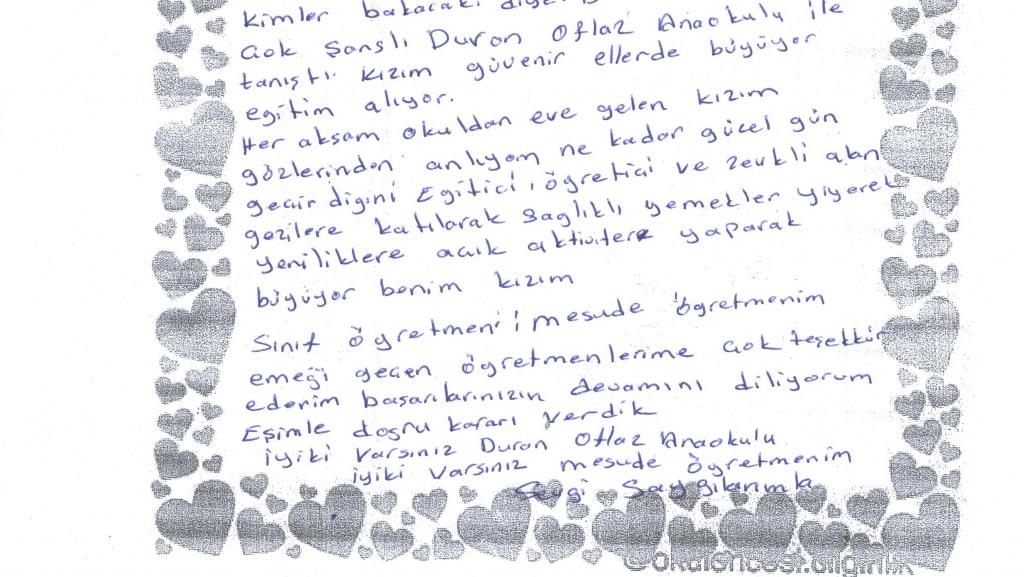 kimler bakacak
çok şanslı Duran Oflaz Anaokulu ile
tanıştı. Kızım güvenir ellerde büyüyor
egitim alıyor.
Her aksam okuldan eve gelen kızım
gözlerinden anlıyom ne kadar gücel gün
gecirdigini Egitici, ögretici ve zevkli alan
gezilere katılarak saglıklı yemekler yiyerek
yeniliklere acık aktiviteler yaparak
büyüyor benim kızım
Sınıf ögretmeni; mesude ögretmenim
emeği geçen ögretmenlerime çok teşekkür
ederim başarılarınızın devamını diliyorum
Eşimle dogru kararı verdik
iyiki varsınız Duran Oflaz Anaokulu
iyiki varsınız mesude ögretmenim
Sevgi Saygılarımla
@okuloncesi.bilginlik